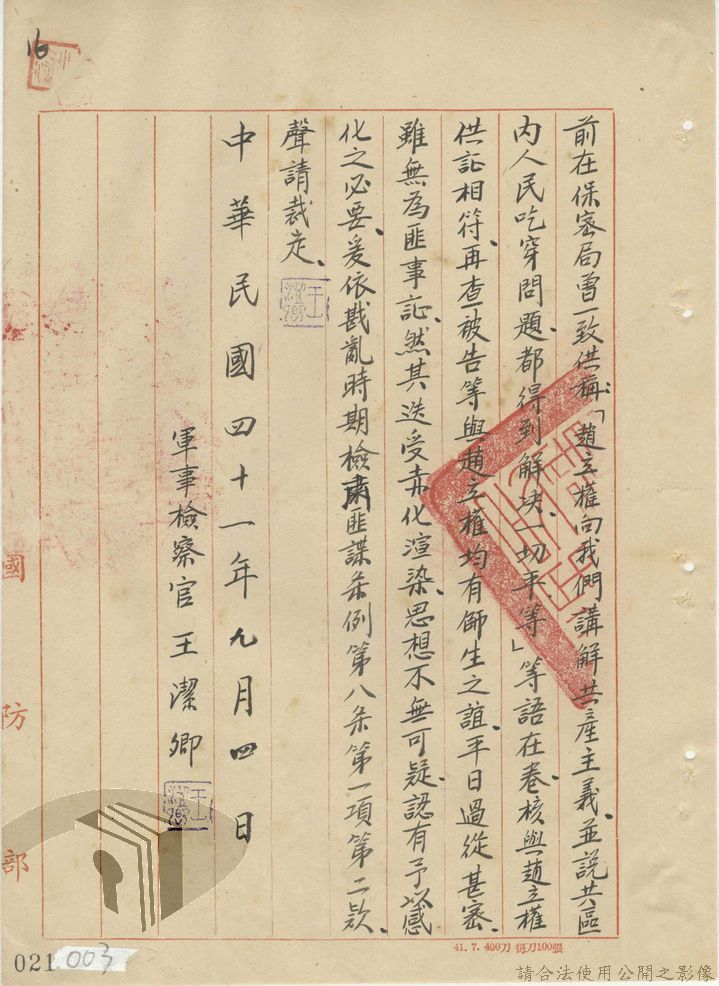 前在保密局曾一致供稱「趙立權向我們講解共產主義、並說共區
內人民吃穿問題、都得到解決、一切平等」等語在卷、核與趙立權
供証相符、再查被告等與趙立權均有師生之誼、平日過從甚密、
雖無為匪事証、然其迭受赤化渲染、思想不無可疑、認有予以感
化之必要、爰依戡亂時期檢肅匪諜条例第八条第一項第二款、
聲請裁定、
中華民國四十一年九月四日
軍事檢察官王潔卿
國防部
16
021
003
41.7.400刀 每刀100張
請合法使用公開之影像